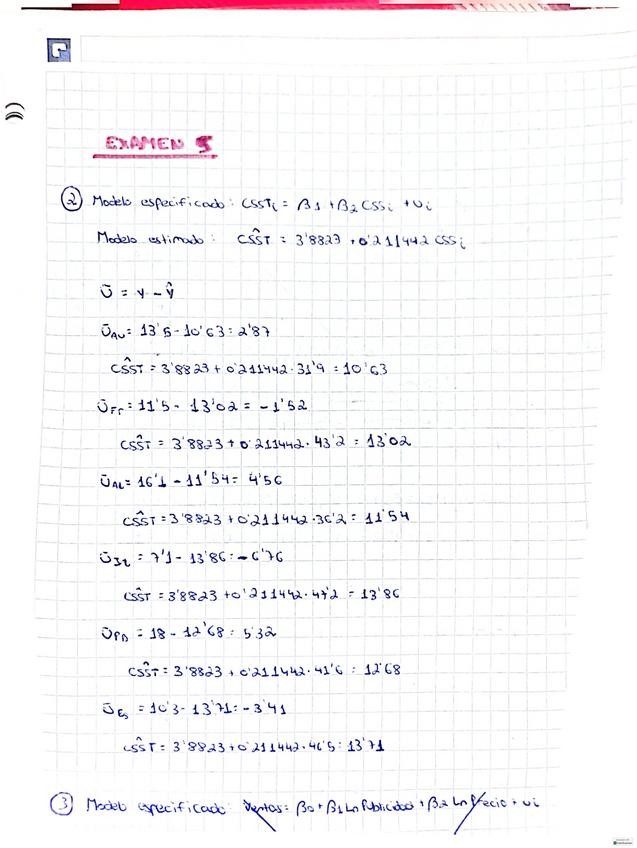 EXAMEN 5
② Modelo especificado: CSSTi = β1 + β2 CSSi + Ui
Modelo estimado: CSŜT = 3'8823 + 0'211442 CSSi
Ū = Y - Ŷ
ŪAU = 13'5 - 10'63 = 2'87
CSŜT = 3'8823 + 0'211442 · 31'9 = 10'63
ŪFC = 11'5 - 13'02 = -1'52
CSŜT = 3'8823 + 0'211442 · 43'2 = 13'02
ŪAL = 16'1 - 11'54 = 4'56
CSŜT = 3'8823 + 0'211442 · 36'2 = 11'54
= 7'1 - 13'86 = -6'76
CSŜT = 3'8823 + 0'211442 · 47'2 = 13'86
= 18 - 12'68 = 5'32
CSŜT = 3'8823 + 0'211442 · 41'6 = 12'68
ŪEs = 10'3 - 13'71 = -3'41
CSŜT = 3'8823 + 0'211442 · 46'5 = 13'71
③ Modelo especificado: Ventas = β0 + β1 Ln Publicidad + β2 Ln Precio + ui